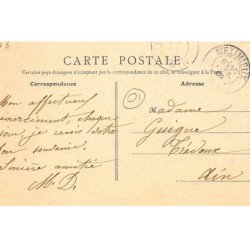 CARTE POSTALE
Certains pays étrangers n'acceptent pas la correspondance de ce côté, se renseigner à la Poste
Correspondance
Adresse
Mon affectueux
remerciement, chaque
jour, je vois votre
bon souvenir.
Sincère amitié
M. D.
Madame
Guigue
Trévoux
Ain